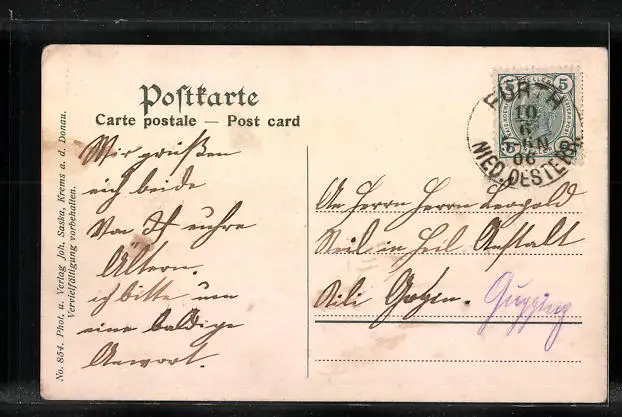 Postkarte
Carte postale — Post card
No. 854. Phot. u. Verlag Joh. Saska, Krems a. d. Donau.
Vervielfältigung vorbehalten.
5 5
FURTH
10
6
06
NIED. OESTERR.
Wir grüßen
eich beide
Von euhre
Ältern.
ich bitte um
eine baldige
Anwort.
An Herrn Herrn Leopold
in Heil Anstalt
Gugging